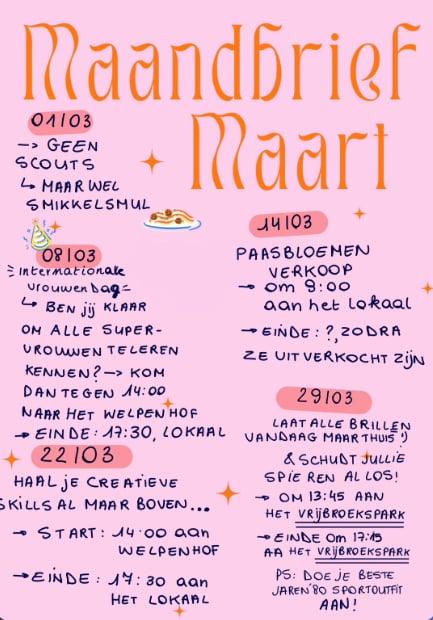 Maandbrief
Maart
01/03
-> GEEN
SCOUTS
↳ MAAR WEL
SMIKKELSMUL
08/03
Internationale
vrouwendag
↳ BEN jij KLAAR
OM ALLE SUPER-
VROUWEN TE LEREN
KENNEN? -> KOM
DAN TEGEN 14:00
NAAR HET WELPENHOF
-> EINDE: 17:30, LOKAAL
22/03
HAAL je CREATIEVE
SKILLS AL MAAR BOVEN...
-> START: 14:00 aan
WELPENHOF
-> EINDE: 17:30 aan
HET LOKAAL
14/03
PAASBLOEMEN
VERKOOP
-> om 9:00
aan het lokaal
-> EINDE: ?, ZODRA
ZE UITVERKOCHT ZIJN
29/03
LAAT ALLE BRILLEN
VANDAAG MAAR THUIS :)
& SCHUDT JULLIE
SPIEREN AL LOS!
-> OM 13:45 AAN
HET VRIJBROEKSPARK
-> EINDE OM 17:15
AA HET VRIJBROEKSPARK
PS: DOE JE BESTE
JAREN '80 SPORTOUTFIT
AAN!